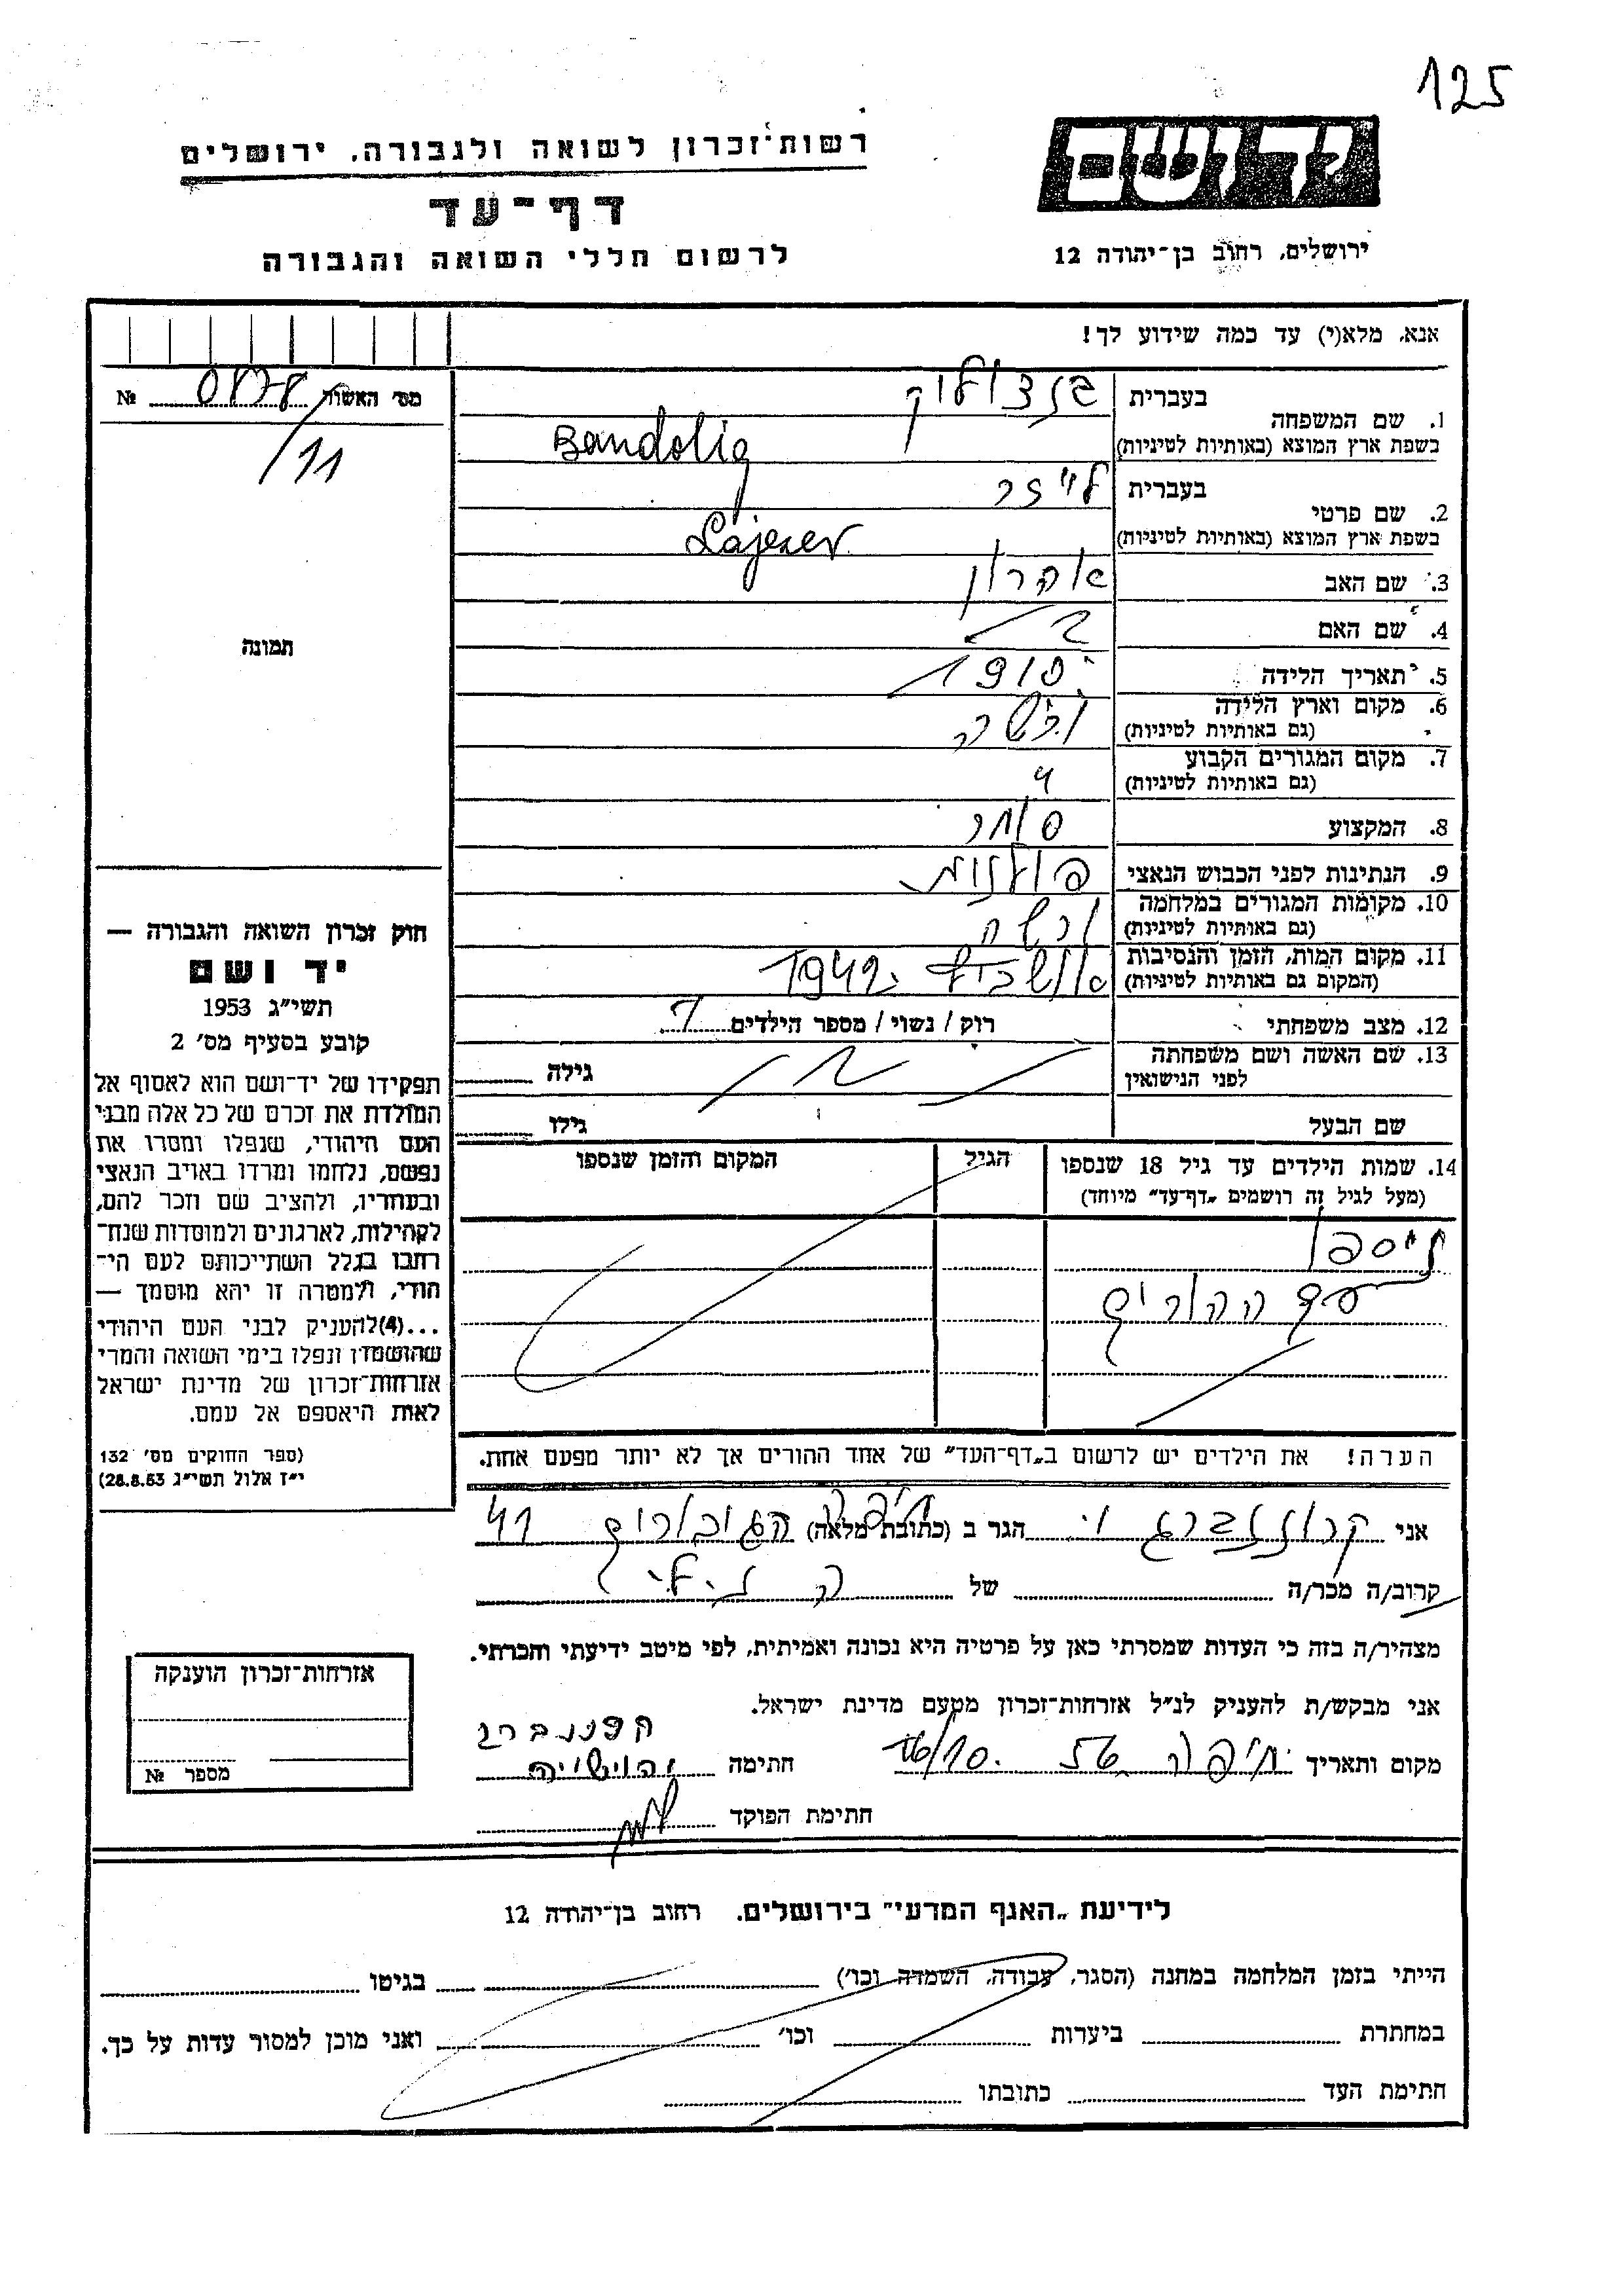 125
רשות־זכרון לשואה ולגבורה, ירושלים
דף־עד
לרשום חללי השואה והגבורה
יד ושם
ירושלים, רחוב בן־יהודה 12
אנא, מלא(י) עד כמה שידוע לך!
מס׳ האשור №
11
תמונה
1. שם המשפחה בעברית
בשפת ארץ המוצא (באותיות לטיניות) Bandolig
2. שם פרטי בעברית לייזר
בשפת ארץ המוצא (באותיות לטיניות) Lajezer
3. שם האב אהרון
4. שם האם
5. תאריך הלידה 1910
6. מקום וארץ הלידה ורשה
(גם באותיות לטיניות)
7. מקום המגורים הקבוע
(גם באותיות לטיניות)
8. המקצוע סוחר
9. הנתינות לפני הכבוש הנאצי פולנית
10. מקומות המגורים במלחמה ורשה
(גם באותיות לטיניות)
11. מקום המות, הזמן והנסיבות 1942
(המקום גם באותיות לטיניות)
12. מצב משפחתי רוק / נשוי / מספר הילדים
13. שם האשה ושם משפחתה גילה
לפני הנישואין
שם הבעל גילו
14. שמות הילדים עד גיל 18 שנספו הגיל המקום והזמן שנספו
(מעל לגיל זה רושמים „דף־עד״ מיוחד)
ניספו
עם ההורים
הערה! את הילדים יש לרשום ב„דף־העד״ של אחד ההורים אך לא יותר מפעם אחת.
חוק זכרון השואה והגבורה —
יד ושם
תשי״ג 1953
קובע בסעיף מס׳ 2
תפקידו של יד־ושם הוא לאסוף אל
המולדת את זכרם של כל אלה מבני
העם היהודי, שנפלו ומסרו את
נפשם, נלחמו ומרדו באויב הנאצי
ובעוזריו, ולהציב שם וזכר להם,
לקהילות, לארגונים ולמוסדות שנח־
רבו בגלל השתייכותם לעם הי־
הודי, ולמטרה זו יהא מוסמך —
...(4) להעניק לבני העם היהודי
שהושמדו ונפלו בימי השואה והמרי
אזרחות־זכרון של מדינת ישראל
לאות היאספם אל עמם.
(ספר החוקים מס׳ 132
י״ז אלול תשי״ג 28.8.53)
אני הגר ב (כתובת מלאה) חיפה הגיבורים 41
קרוב/ה מכר/ה של
מצהיר/ה בזה כי העדות שמסרתי כאן על פרטיה היא נכונה ואמיתית, לפי מיטב ידיעתי והכרתי.
אני מבקש/ת להעניק לנ״ל אזרחות־זכרון מטעם מדינת ישראל.
מקום ותאריך חיפה 16/10. 56 חתימה
חתימת הפוקד
אזרחות־זכרון הוענקה
מספר №
לידיעת „האגף המדעי״ בירושלים, רחוב בן־יהודה 12
הייתי בזמן המלחמה במחנה (הסגר, עבודה, השמדה וכו׳) בגיטו
במחתרת ביערות וכו׳ ואני מוכן למסור עדות על כך.
חתימת העד כתובתו